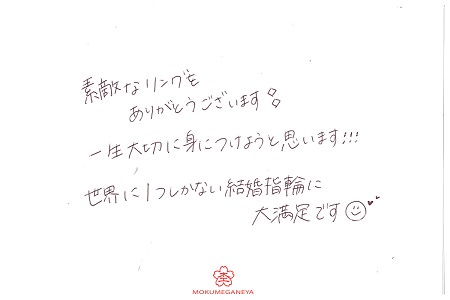 素敵なリングを
ありがとうございます
一生大切に身につけようと思います!!!
世界に1つしかない結婚指輪に
大満足です
木
MOKUMEGANEYA